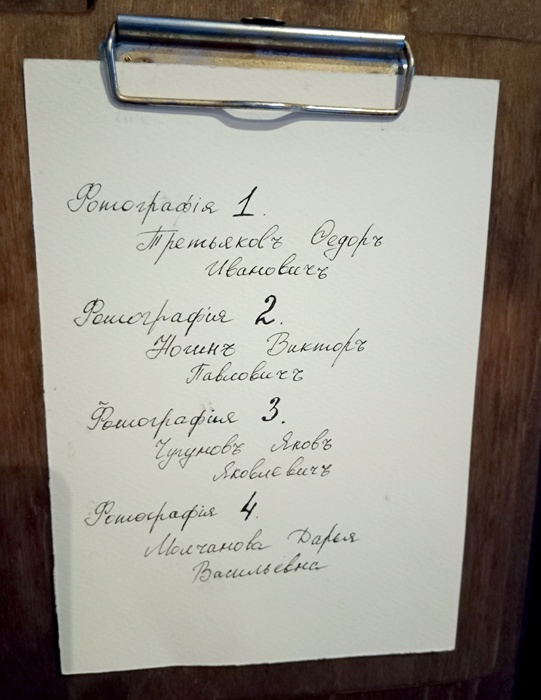 Фотографія 1.
Третьяковъ Ѳедоръ
Ивановичъ
Фотографія 2.
Ногинъ Викторъ
Павловичъ
Фотографія 3.
Чугуновъ Яковъ
Яковлевичъ
Фотографія 4.
Молчанова Дарья
Васильевна